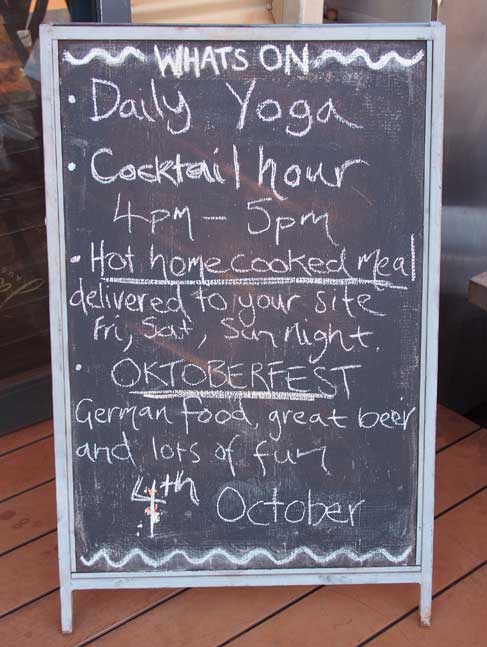 WHATS ON
• Daily Yoga
• Cocktail hour
4pm - 5pm
• Hot home cooked meal
delivered to your site
Fri, Sat, Sun night.
• OKTOBERFEST
German food, great beer
and lots of fun
4th October